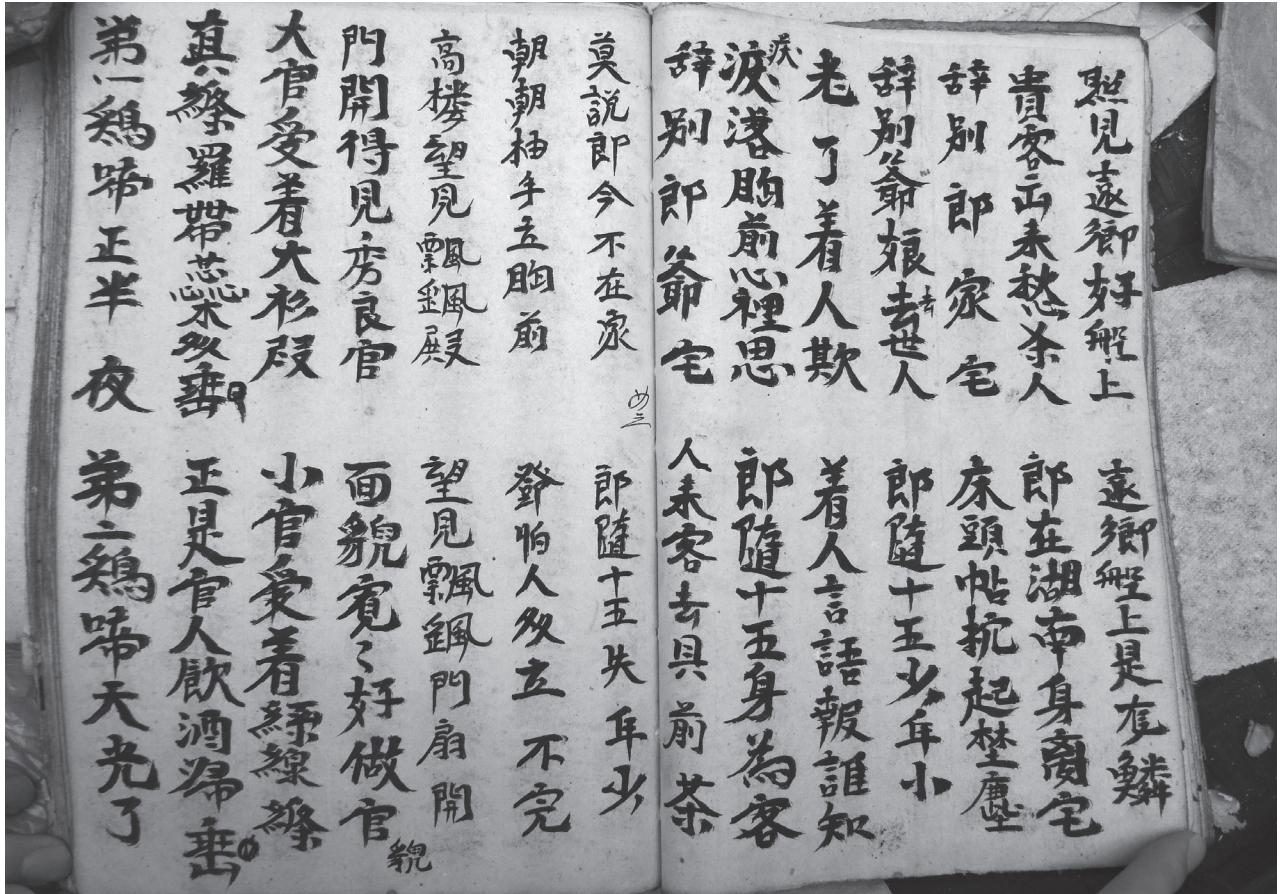 照見遠鄉好船上
遠鄉船上是有鱗
貴客出来愁杀人
郎在湖南身离宅
辞别郎家宅
床頭帖枕起埜塵
辞别爺娘去世人
去
郎隨十五少年小
老了着人欺
着人言語報誰知
淚落胸前心裡思
郎隨十五身為客
辞别郎爺宅
人来客去具前茶
莫說郎今不在家
郎隨十五失年少
朝朝柚手立胸前
鄧怕人多立不完
高楼望見飄殿
望見飄門扇開
門開得見秀良官
面貌寬〻好做官
貌
大官受着大衫段
小官爱着緑線縧
真縧羅帶蕊朵多垂
正是官人飲酒歸
垂
弟一鷄啼正半夜
弟二鷄啼天光了